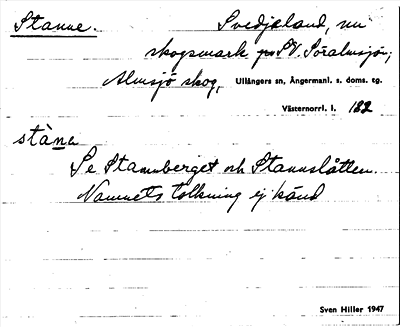 Stanne. Svedjeland, nu
skogsmark på SV. Söralmsjö;
Almsjö skog, Ullångers sn, Ångermanl. s. doms. tg.
Västernorrl. l. 182
stàne
Se Stannberget och Stannslåtten.
Namnets tolkning ej känd
Sven Hiller 1947